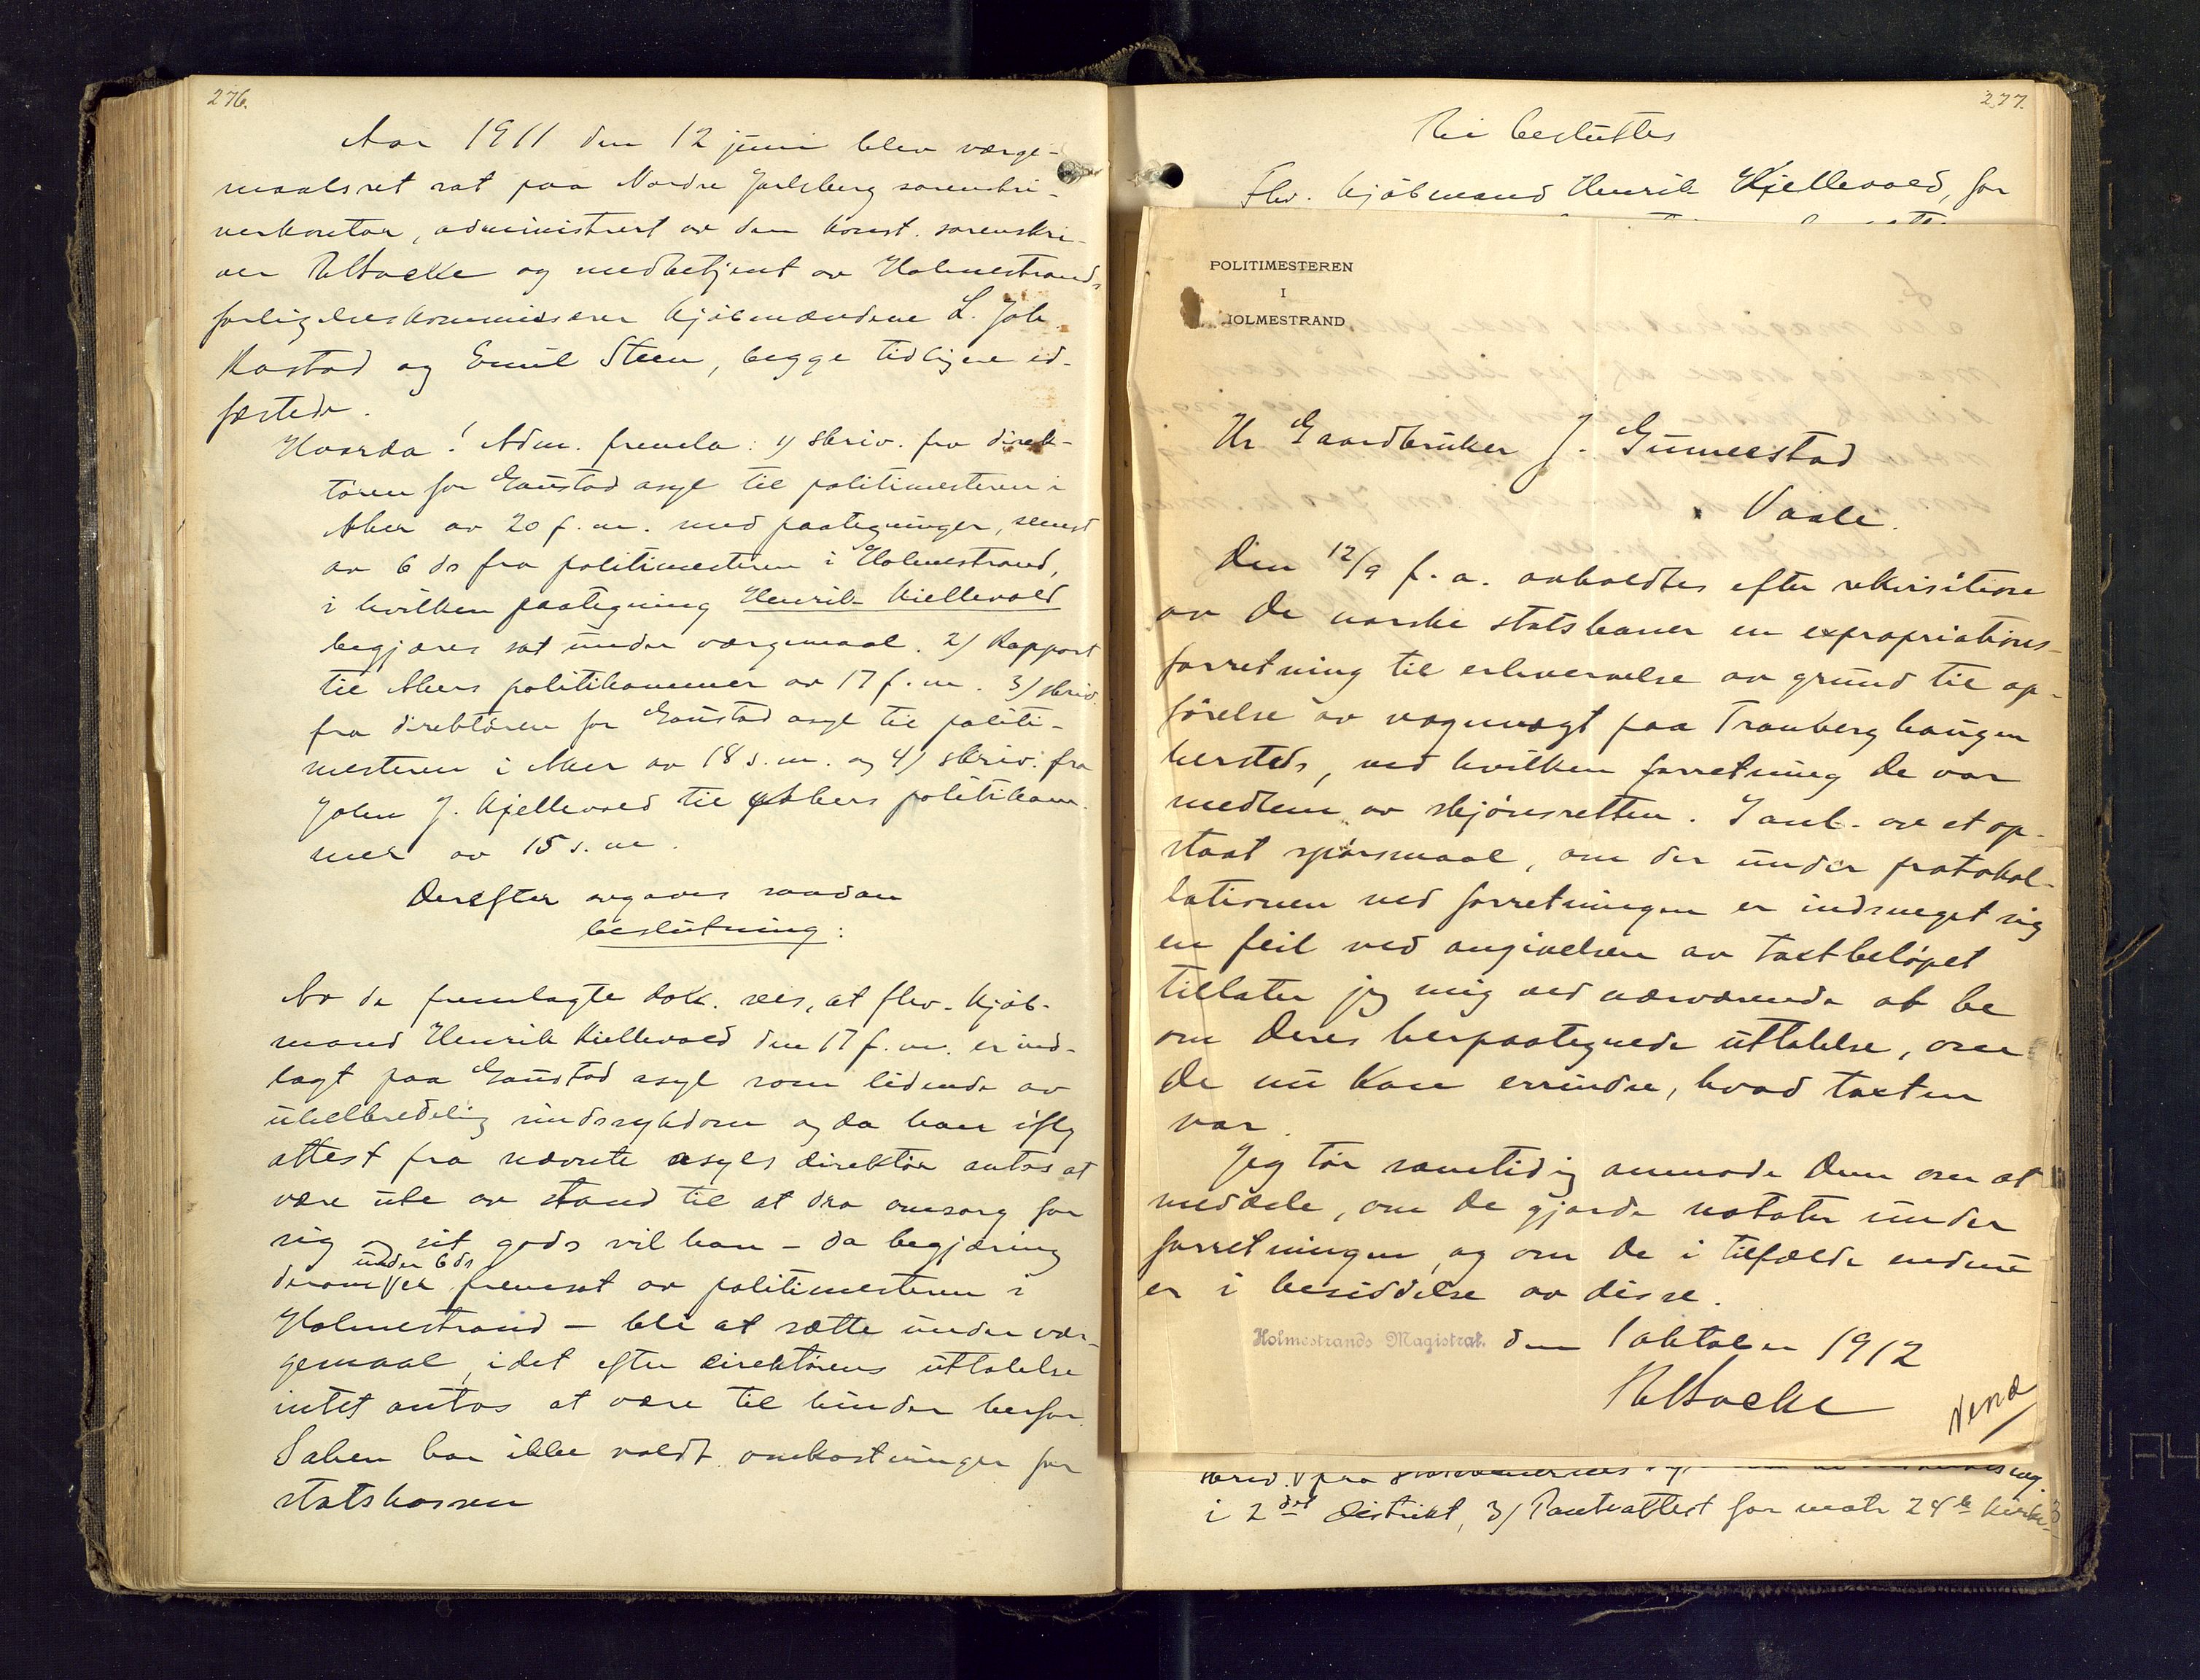 276.
Aar 1911 den 12 juni blev værge-
maalsret sat paa Nordre Jarlsberg sorenskri-
verkontor, administrert av den konst. sorenskri-
ver og medbetjent av Holmestrands
forligelseskommissærer kjøbmændene L. Joh.
Rastad og Emil Steen, begge tidligere ed-
fæstede.
Hvorda! Adm. fremla: 1) skriv. fra direk-
tøren for Gaustad asyl til politimesteren i
Aker av 20 f. m. med paategninger, senest
av 6 ds fra politimesteren i Holmestrand,
i hvilken paategning Henrik Kiellevold
begjæres sat under værgemaal. 2) Rapport
til Akers politikammer av 17 f. m. 3) skriv.
fra direktøren for Gaustad asyl til politi-
mesteren i Aker av 18 s. m. og 4) skriv. fra
John J. Kjellevold til Akers politikam-
mer av 15 s. m.
Derefter avgaves saadan
beslutning:
Av de fremlagte dok. sees, at fhv. kjøb-
mand Henrik Kiellevold den 17 f. m. er ind-
lagt paa Gaustad asyl som lidende av
uhelbredelig sindssygdom og da han iflg
attest fra nævnte asyls direktør antas at
være ute av stand til at dra omsorg for
sig og sit gods vil han – da begjæring
under 6 ds
derom er fremsat av politimesteren i
Holmestrand – bli at sætte under vær-
gemaal, idet efter direktørens uttalelse
intet antas at være til hinder herfor.
Saken har ikke voldt omkostninger for
statskassen
277.
Ti besluttes
Fhv. kjøbmand Henrik Kjellevold, for
POLITIMESTEREN
I
HOLMESTRAND
Hr Gaardbruker J. Gunnestad
Vaale.
Den 12/9 f. a. avholdtes efter rekvisition
av De norske statsbaner en expropriations-
forretning til erhvervelse av grund til op-
førelse av vognvægt paa Tranberg haugen
hersteds, ved hvilken forretning De var
medlem av skjønsretten. I anl. av et op-
staat spørsmaal, om der under protokol-
lationen ved forretningen er indsneget sig
en feil ved angivelsen av taxtbeløpet
tillater jeg mig ved nærværende at be
om Deres herpaategnede uttalelse, om
De nu kan erindre, hvad taxten
var.
Jeg tør samtidig anmode Dem om at
meddele, om De gjorde notater under
forretningen, og om De i tilfælde endnu
er i besiddelse av disse.
Holmestrands Magistrat. den 1 oktober 1912
Vend
skriv. fra
i 2det distrikt, 3) Panteattest for matr 24b Kirke-